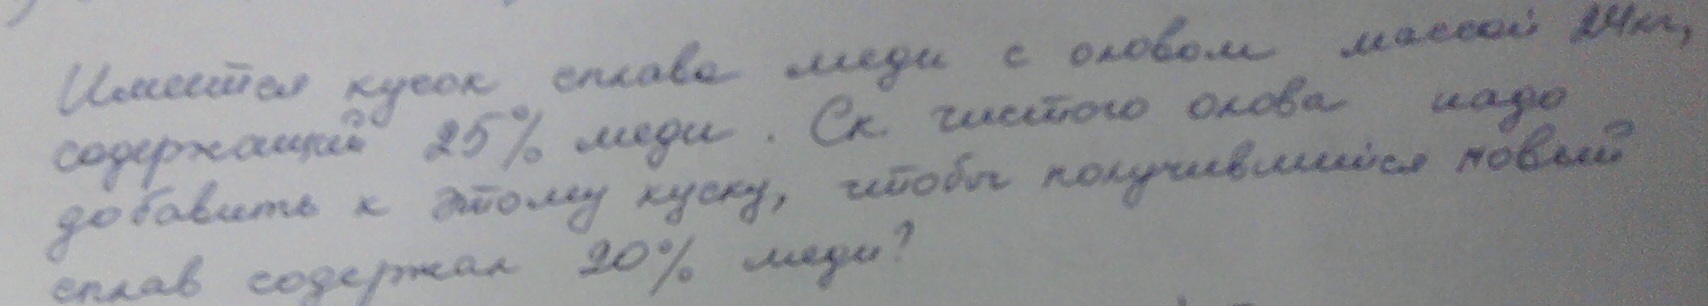 Имеется кусок сплава меди с оловом массой 24кг,
содержащий 25% меди. Ск. чистого олова надо
добавить к этому куску, чтобы получившийся новый
сплав содержал 20% меди?